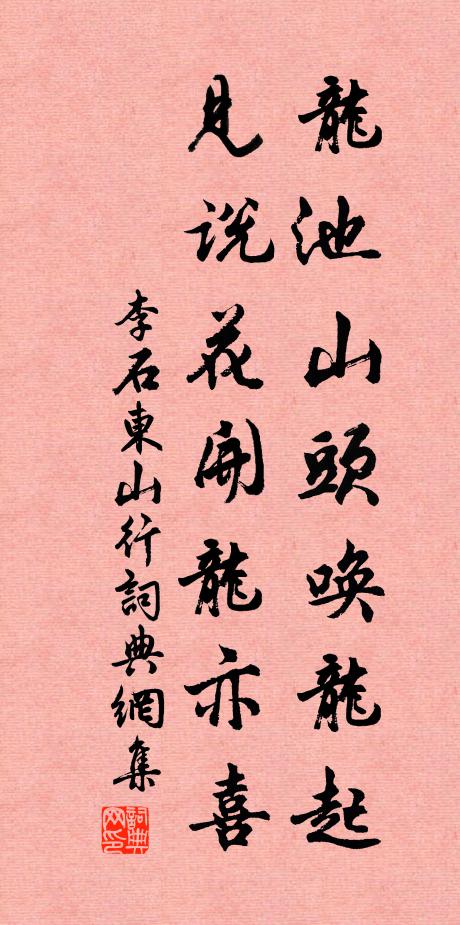 龍池山頭喚龍起
見説花開龍亦喜
李石東山行詞典網集
詞典网印